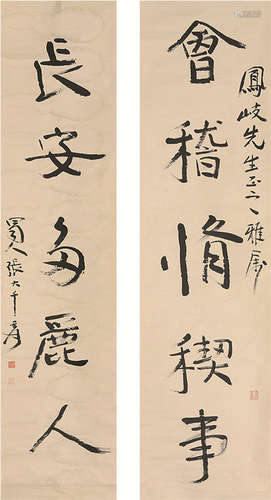 鳳岐先生正之雅屬
會稽脩禊事
長安多麗人
蜀人張大千爰